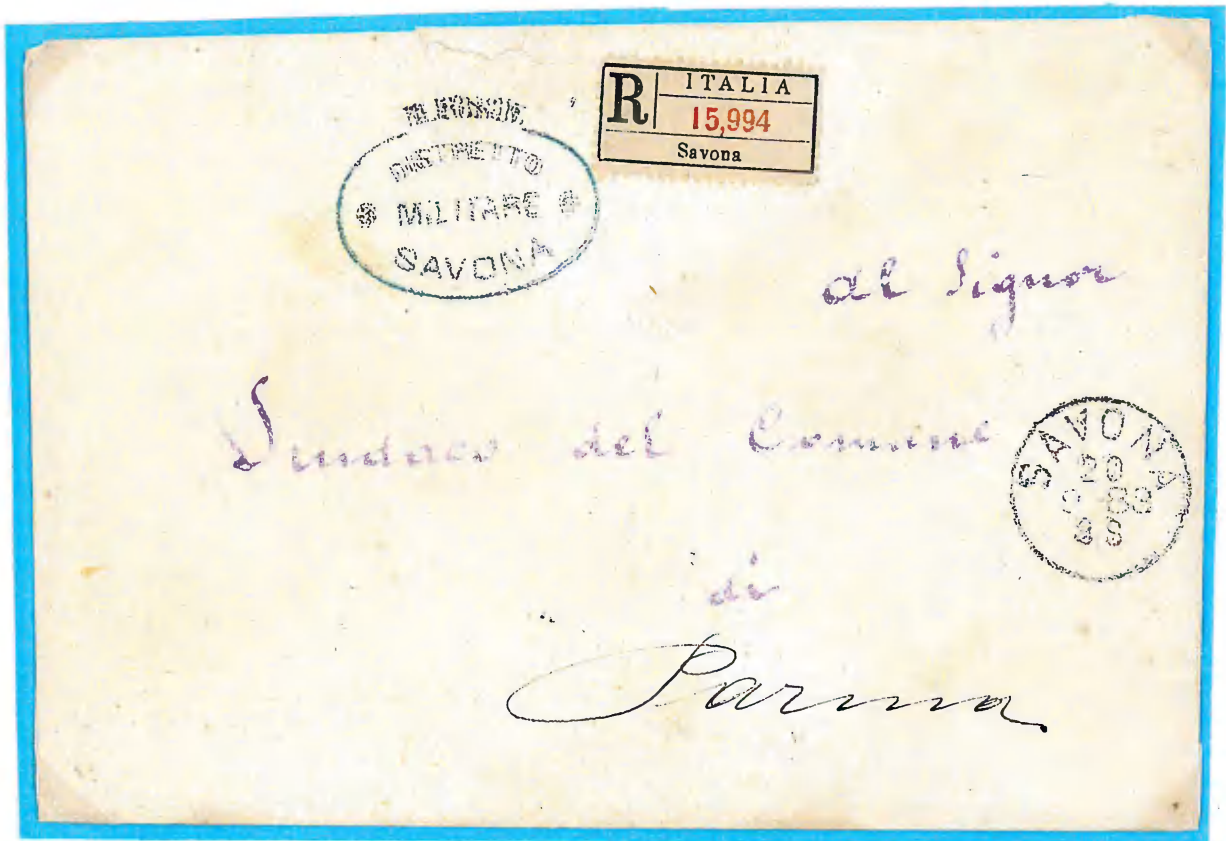 DISTRETTO
MILITARE
SAVONA
R ITALIA
15,994
Savona
al Signor
Sindaco del Comune
SAVONA
20
83
di
Parma